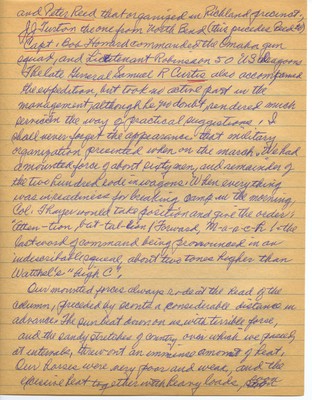 and Peter Reed that organized in Richland precinct,
J.J. Turton the one from North Bend (this precedes Reed's)
Capt. Bob Howard commanded the Omaha gun
squad, and Lieutenant Robinson 50 U.S. dragoons
The late General Samuel R. Curtis also accompanied
the expedition, but took no active part in the
management, although he no doubt rendered much
service in the way of practical suggestions. I
shall never forget the appearance that military
organization presented when on the march. We had
a mounted force of about sixty men, and remainder of
the two hundred rode in wagons. When everything
was in readiness for breaking camp in the morning,
Col. Thayer would take position and give the orders:
Atten-tion, bat-tal-lion! Forward, M-a-r-c-h! - the
last word of command being pronounced in an
indescribable squeal, about two tones higher than
Watthel's "high C".
Our mounted forces always rode at the head of the
column, preceded by scouts a considerable distance in
advance. The sun beat down on us with terrible force,
and the sandy stretches of country over which we passed,
at intervals, threw out an immense amount of heat.
Our horses were very poor and weak, and the
excessive heat together with heavy loads,